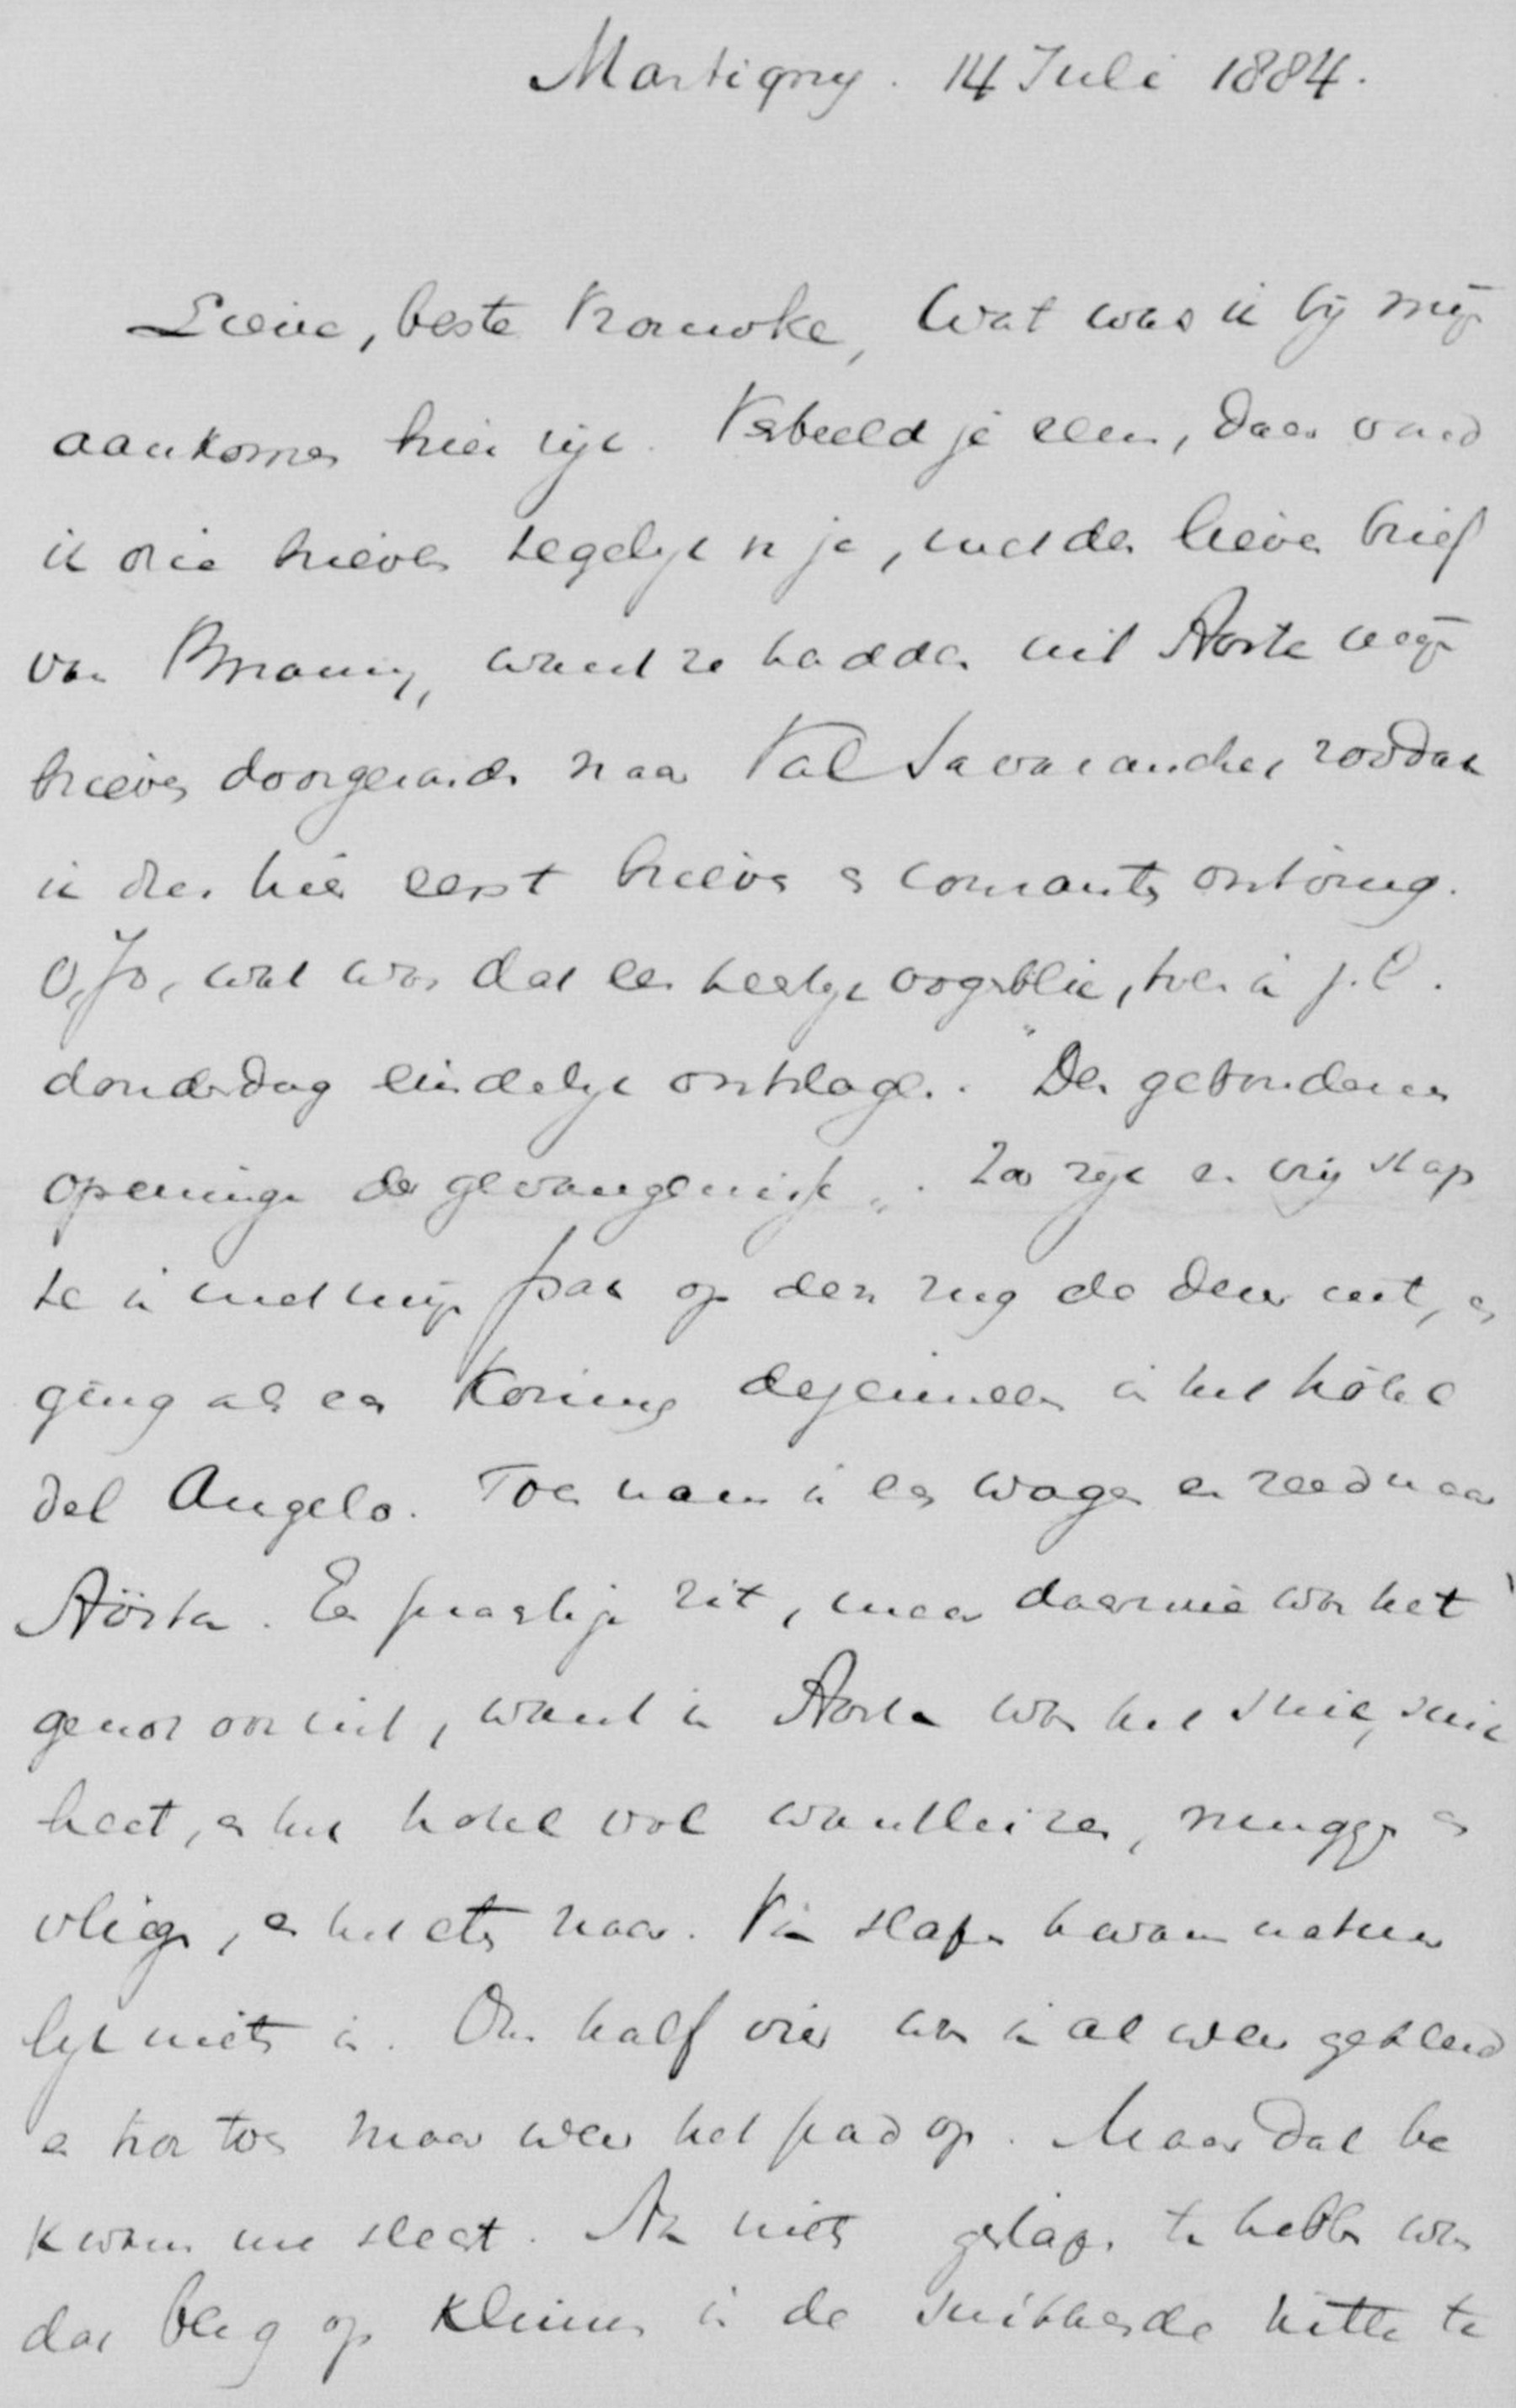 Martigny. 14 Juli 1884.
Lieve, beste Vrouwke, Wat was ik bij mijn
aankomen hier rijk. Verbeeld je eens, daar vond
ik drie brieven tegelijk v. je, met den lieven brief
van Bramy, want ze hadden uit Aosta mijn
brieven doorgezonden naar Val Savaranches zoodat
ik dus hier eerst brieven en couranten ontving.
O, Jo, wat was dat een heerlijk oogenblik, toen ik j.l.
donderdag eindelijk ontslagen. "Den gebondenen
opening der gevangenisse". Zoo rijk en vrij stap
te ik met mijn pak op den rug de deur uit, en
ging als een Koning dejeuneeren in het hôtel
del Angelo. Toen nam ik een wagen en reed naar
Aosta. Een prachtige rit, maar daarmee was het
genot ook uit, want in Aosta was het stik, stik
heet, en het hotel vol wandluizen, muggen en
vliegen, en het eten naar. Van slapen kwam natuur
lijk niets in. Om half vier was ik al weer gekleed
en trok toen maar weer het pad op. Maar dat be
kwam me slecht. Na niets geslapen te hebben was
dat berg op klimmen in de snikkende hitte te